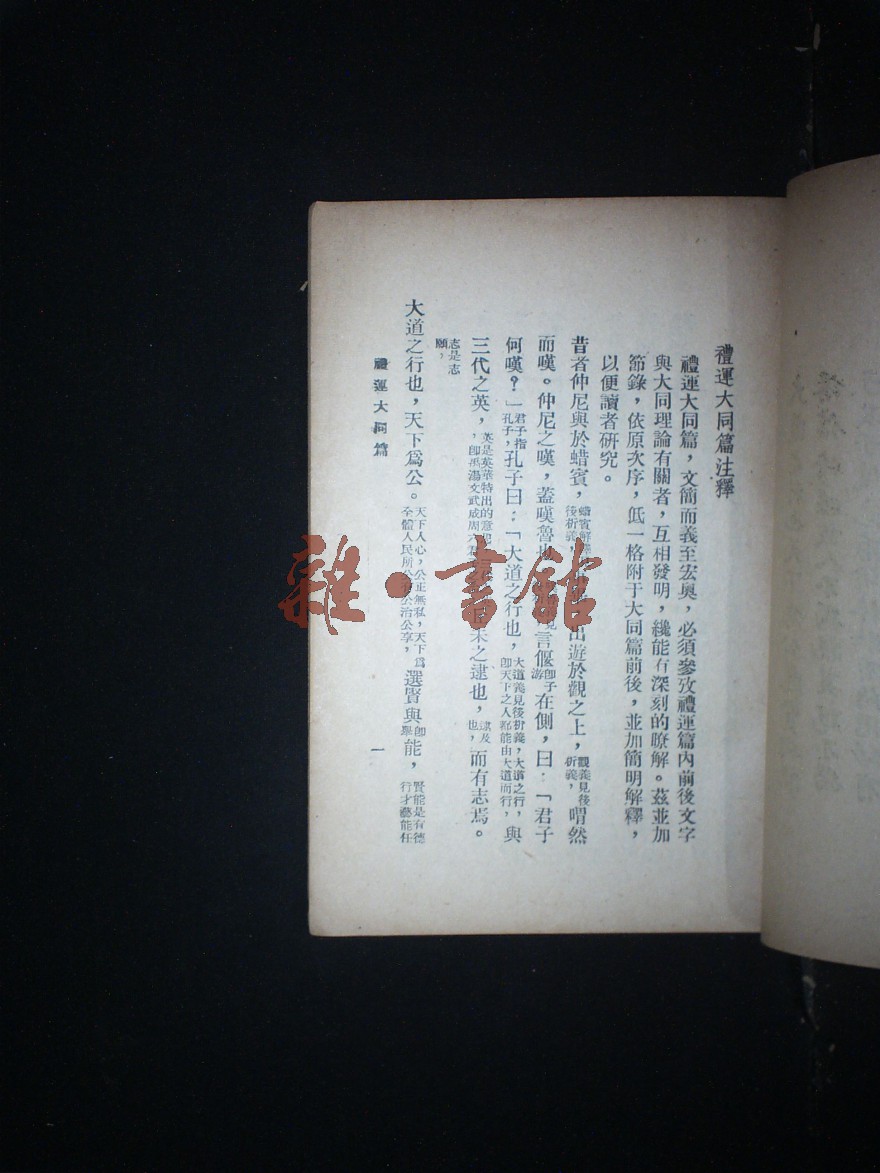 禮運大同篇注釋
禮運大同篇，文簡而義至宏奧，必須參攷禮運篇內前後文字
與大同理論有關者，互相發明，纔能有深刻的瞭解。茲並加
節錄，依原次序，低一格附于大同篇前後，並加簡明解釋，
以便讀者研究。
昔者仲尼與於蜡賓，蜡賓解 後析義， 出遊於觀之上，觀義見後析義，喟然
而嘆。仲尼之嘆，蓋嘆魯也 言偃卽子游在側，曰：「君子
何嘆？」君子指孔子，孔子曰：「大道之行也，大道義見後析義，大道之行，卽天下之人都能由大道而行，與
三代之英，英是英華特出的意 ，卽禹湯文武成周六君 未之逮也，逮及也，而有志焉。
志是志願，
大道之行也，天下爲公。天下人心，公正無私，天下爲全體人民所公 公治公享，選賢與卽舉能，賢能是有德行才藝能任
禮運大同篇
一
雜·書館